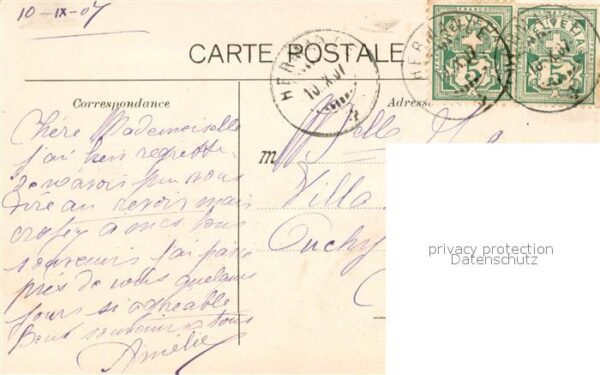 10-IX-07
CARTE POSTALE
HERMANCE
10.X.07
HELVETIA
5
HELVETIA
5
Correspondance
Adresse
Chère Mademoiselle
j'ai bien regretté
de n'avoir pu vous
dire au revoir mais
croyez à mes bons
souvenirs j'ai passé
près de vous quelques
jours si agréable
Bons souvenirs à tous
Amélie
M
Melle
Villa
Ouchy
privacy protection
Datenschutz